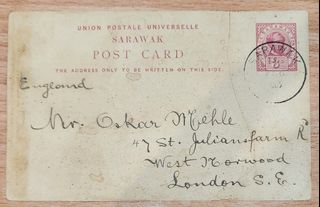 UNION POSTALE UNIVERSELLE
SARAWAK
POST CARD
THE ADDRESS ONLY TO BE WRITTEN ON THIS SIDE.
SARAWAK
England
Mr. Oskar Mehle
47 St. Juliansfarm Rd
West Norwood
London S. E.